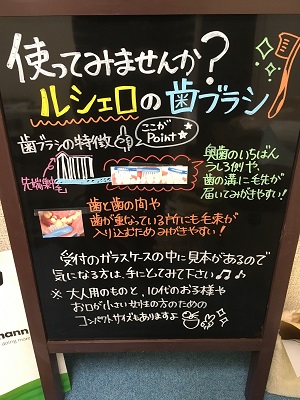 使ってみませんか？
ルシェロの歯ブラシ
歯ブラシの特徴
ここが
Point★
先端剃毛
奥歯のいちばん
うしろ側や、
歯の溝に毛先が
届いてみがきやすい!
歯と歯の間や
歯が重なっている所にも毛束が
入り込むためみがきやすい!
受付のガラスケースの中に見本があるので
気になる方は、手にとってみて下さい♫♪
※大人用のものと、10代のお子様や
お口が小さい女性の方のための
コンパクトサイズもありますよ
mann